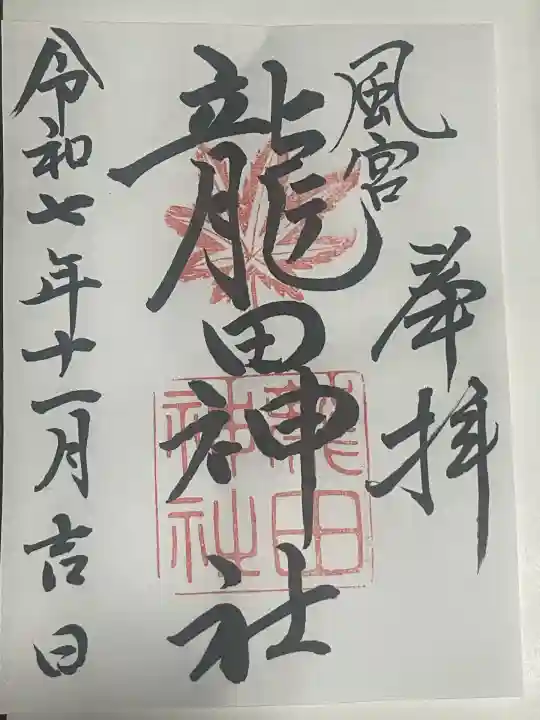 奉拝
風宮
龍田神社
龍田
神社
令和七年十一月吉日